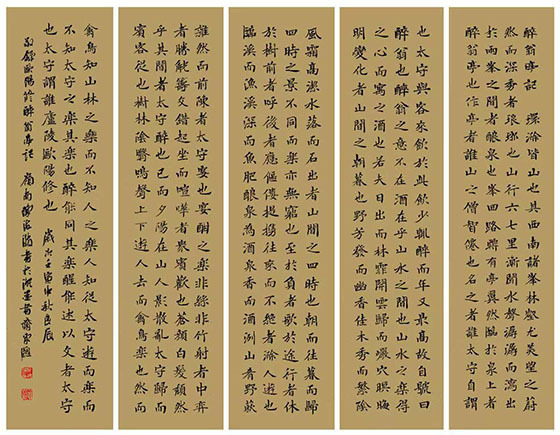 醉翁亭記 環滁皆山也其西南諸峯林壑尤美望之蔚
然而深秀者琅琊也山行六七里漸聞水聲潺潺而瀉出
於兩峯之間者釀泉也峯回路轉有亭翼然臨於泉上者
醉翁亭也作亭者誰山之僧智僊也名之者誰太守自謂
也太守與客來飲於此飲少輒醉而年又最高故自號曰
醉翁也醉翁之意不在酒在乎山水之間也山水之樂得
之心而寓之酒也若夫日出而林霏開雲歸而巖穴暝晦
明變化者山間之朝暮也野芳發而幽香佳木秀而繁陰
風霜高潔水落而石出者山間之四時也朝而往暮而歸
四時之景不同而樂亦無窮也至於負者歌於途行者休
於樹前者呼後者應傴僂提攜往來而不絕者滁人遊也
臨溪而漁溪深而魚肥釀泉為酒泉香而酒洌山肴野蔌
雜然而前陳者太守宴也宴酣之樂非絲非竹射者中弈
者勝觥籌交錯起坐而喧嘩者眾賓歡也蒼顏白髮頹然
乎其間者太守醉也已而夕陽在山人影散亂太守歸而
賓客從也樹林陰翳鳴聲上下遊人去而禽鳥樂也然而
禽鳥知山林之樂而不知人之樂人知從太守遊而樂而
不知太守之樂其樂也醉能同其樂醒能述以文者太守
也太守謂誰廬陵歐陽修也 歲次壬寅中秋良辰
右錄歐陽修醉翁亭記 嶺南